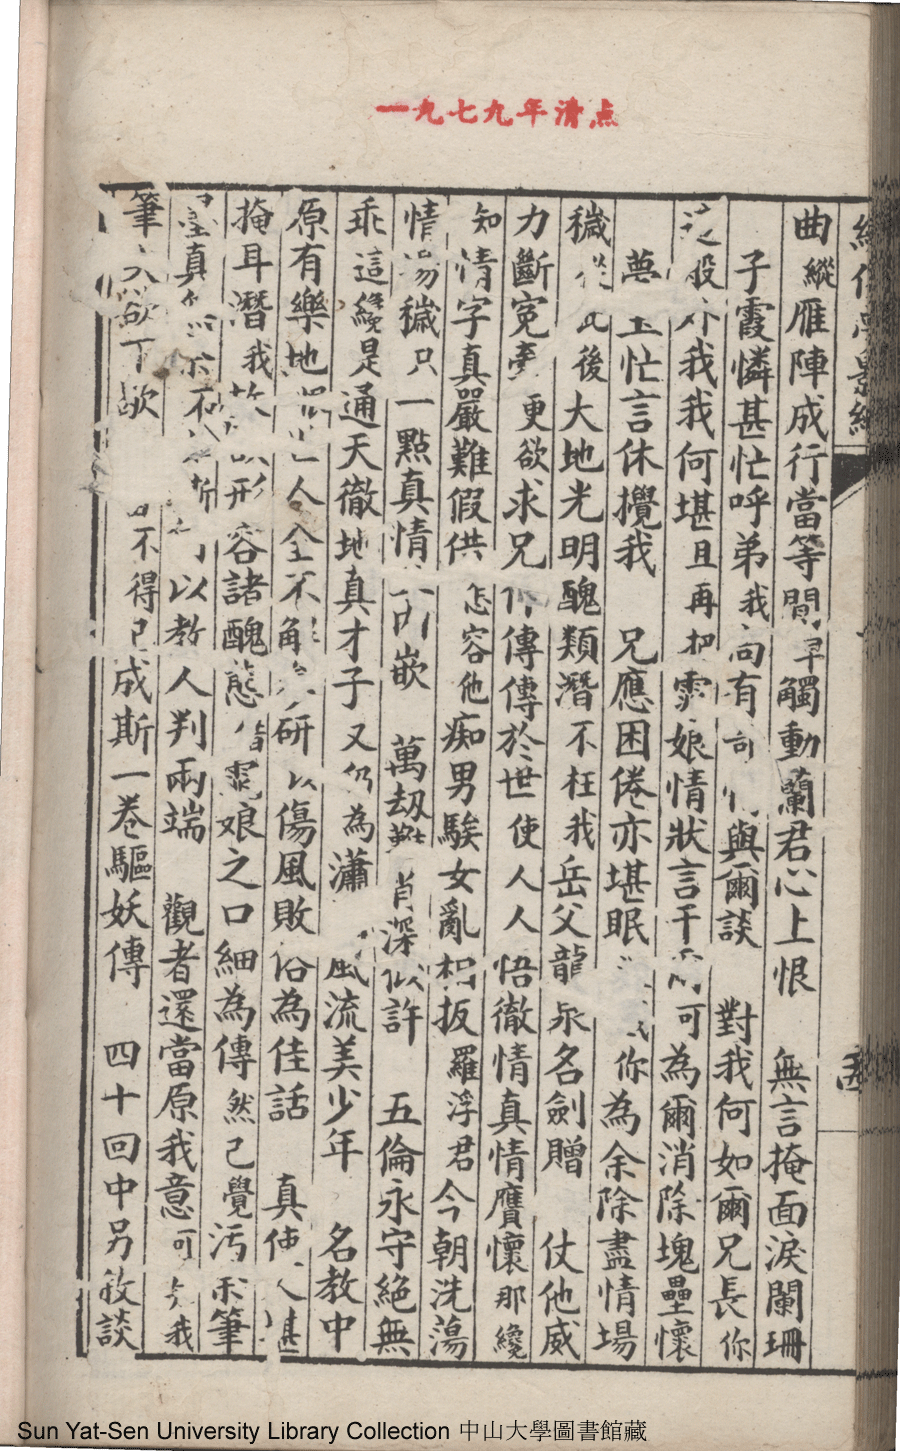 一九七九年清点
曲縱雁陣成行當等閒 觸動蘭君心上恨 無言掩面淚闌珊
子霞憐甚忙呼弟我向有 與爾談 對我何如爾兄長你
般 我我何堪且再把雲娘情狀言千 可為爾消除塊壘懷
夢 忙言休攪我 兄應困倦亦堪眠 你為余除盡情場
穢從此後大地光明醜類潛不枉我岳父龍泉名劍贈 仗他威
力斷冤牽更欲求兄作傳傳於世使人人悟徹情真情贋懷那纔
知情字真嚴難假供 怎容他痴男騃女亂 扳羅浮君今朝洗蕩
情場穢只一點真情 嵌 萬劫 深似許 五倫永守絕無
乖這纔是通天徹地真才子又仍為瀟 風流美少年 名教中
原有樂地 人全不解 研以傷風敗俗為佳話 真使人堪
掩耳潛我故 形容諸醜態借雲娘之口細為傳然已覺污余筆
墨真 不 可以教人判兩端 觀者還當原我意可 我
筆 欲下欲 不得已成斯一卷驅妖傳 四十回中另敘談
Sun Yat-Sen University Library Collection 中山大學圖書館藏